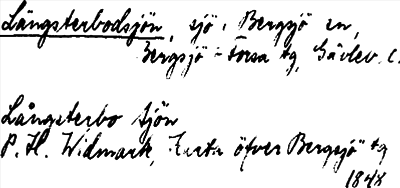 Långsterbodsjön, sjö i Bergsjö sn,
Bergsjö - Forsa tg, Gävleb. l.
Långsterbo Sjön
P. H. Widmark, Karta öfver Bergsjö tg
1848